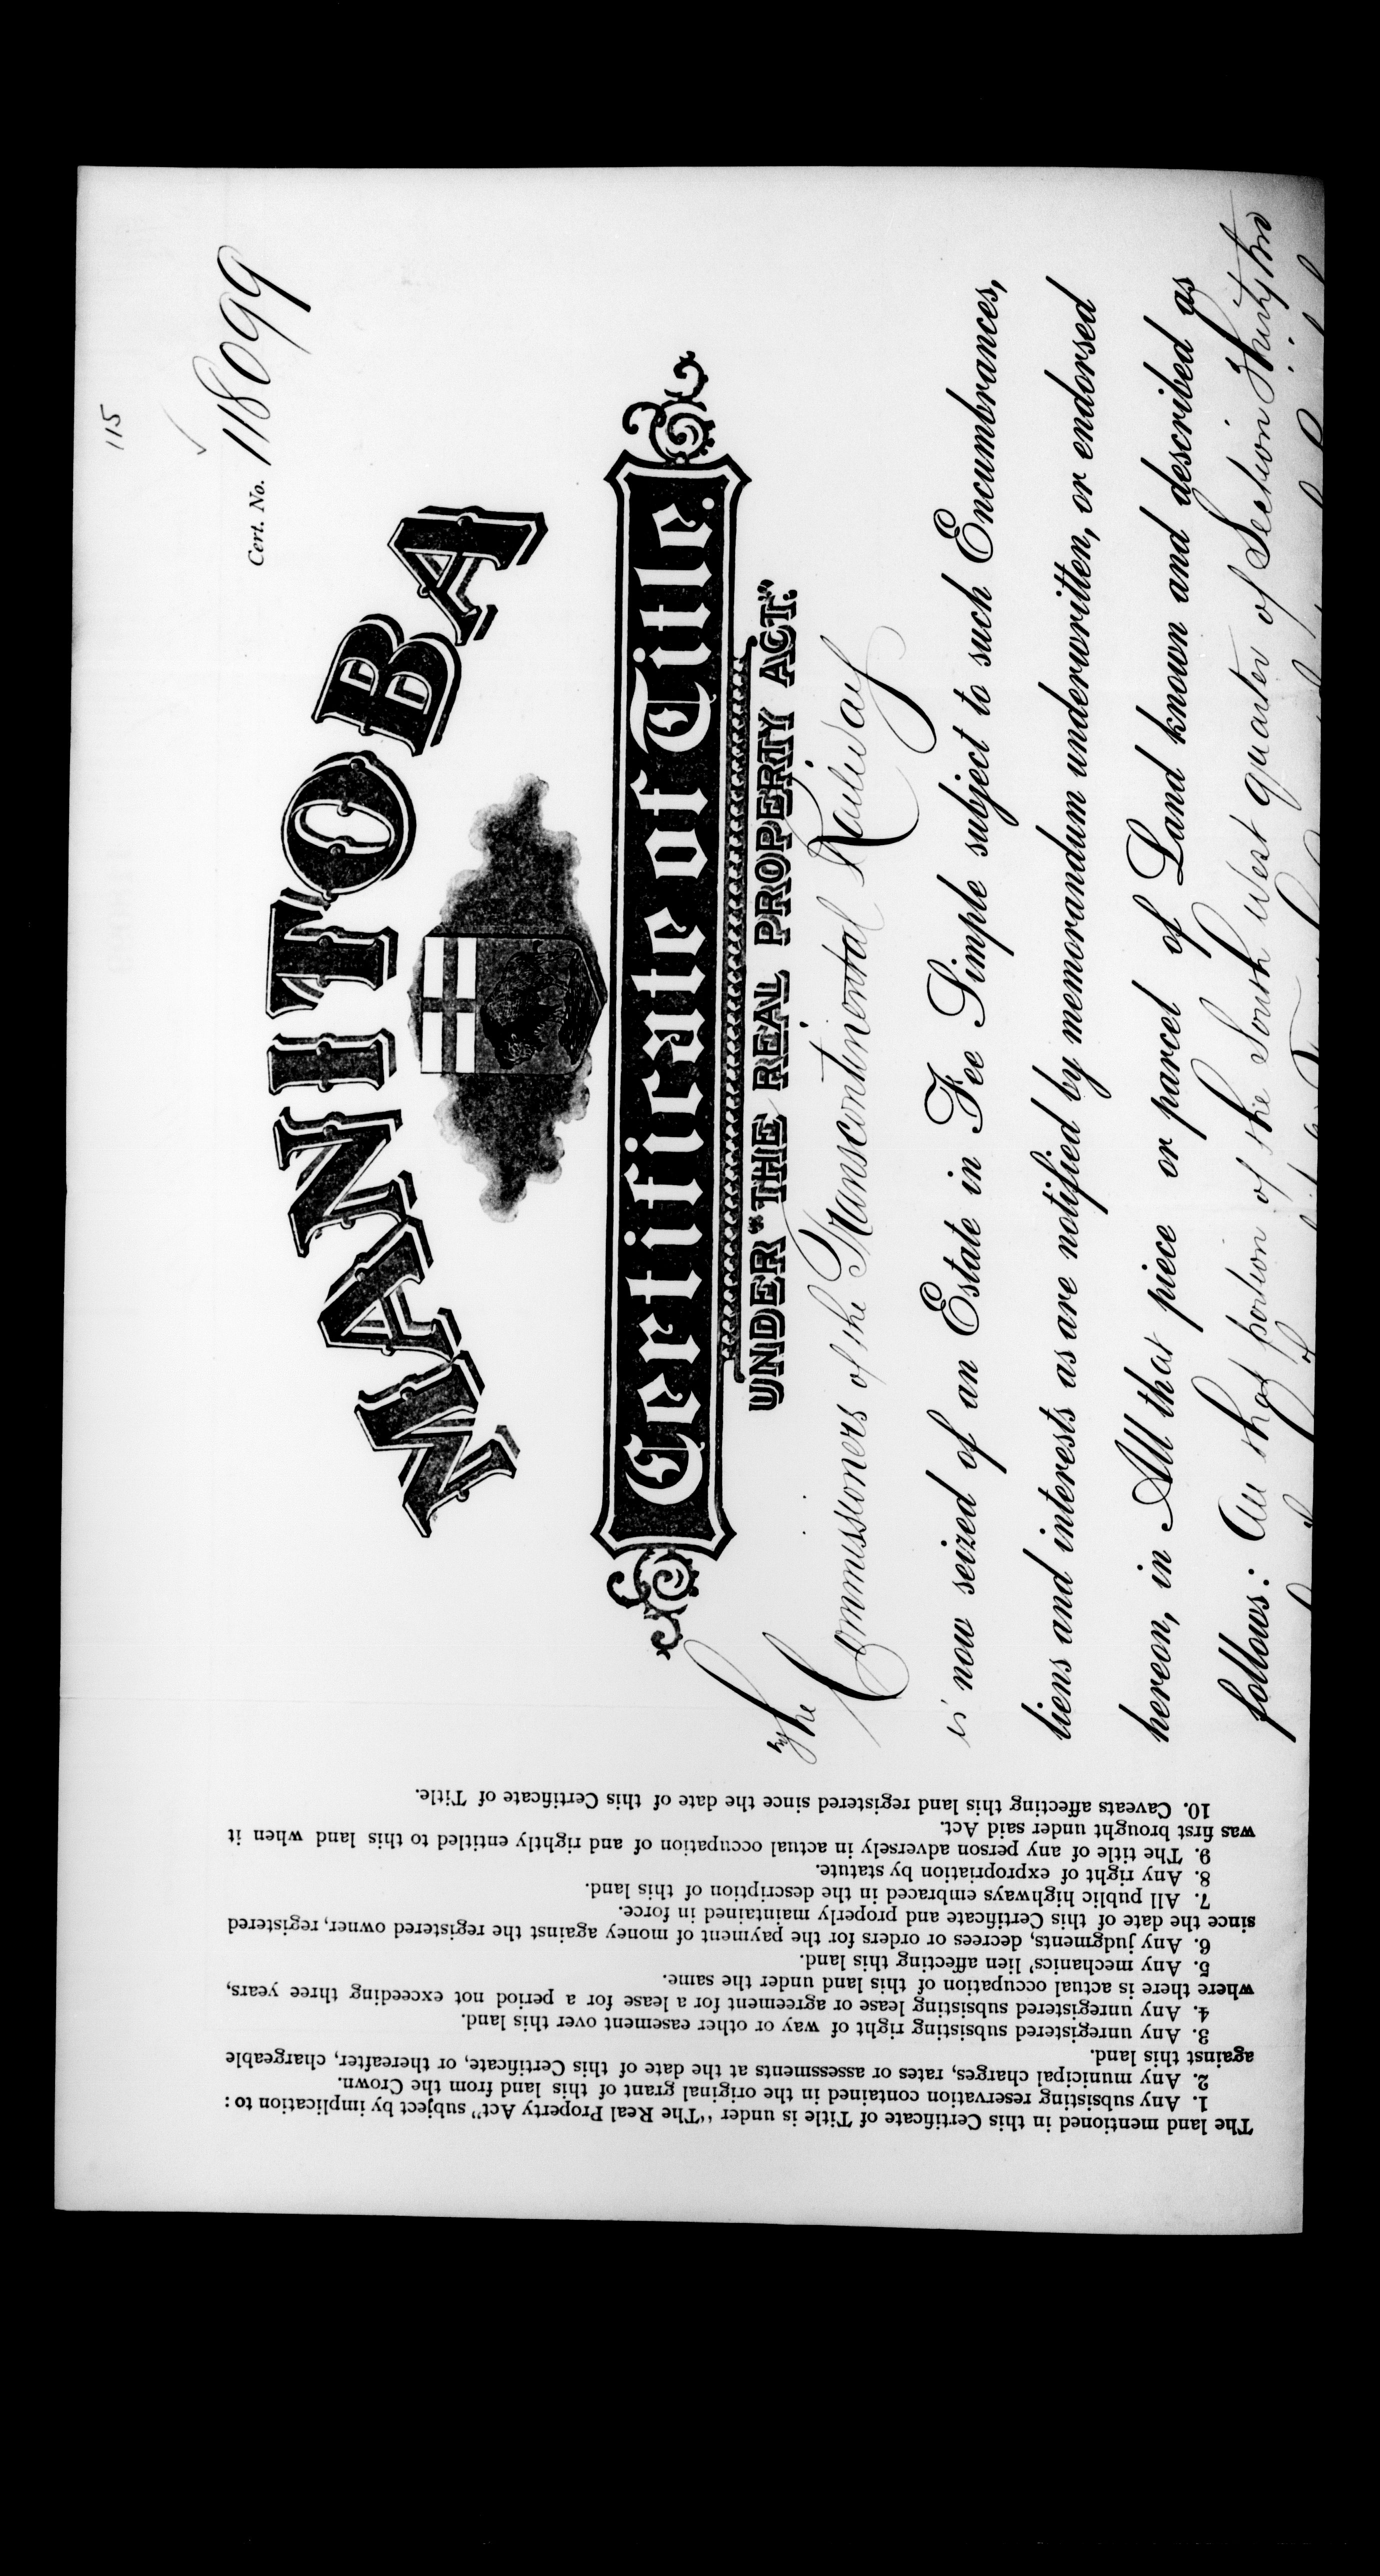 115
Cert. No. 118099
MANITOBA
Certificate of Title.
UNDER "THE REAL PROPERTY ACT."
The
Commissioners of the Transcontinental Railway
is now seized of an Estate in Fee Simple subject to such Encumbrances,
liens and interests as are notified by memorandum underwritten, or endorsed
hereon, in All that piece or parcel of Land known and described as
follows: All that portion of the South West quarter of Section Thirty two
The land mentioned in this Certificate of Title is under "The Real Property Act" subject by implication to:
1. Any subsisting reservation contained in the original grant of this land from the Crown.
2. Any municipal charges, rates or assessments at the date of this Certificate, or thereafter, chargeable
against this land.
3. Any unregistered subsisting right of way or other easement over this land.
4. Any unregistered subsisting lease or agreement for a lease for a period not exceeding three years,
where there is actual occupation of this land under the same.
5. Any mechanics' lien affecting this land.
6. Any judgments, decrees or orders for the payment of money against the registered owner, registered
since the date of this Certificate and properly maintained in force.
7. All public highways embraced in the description of this land.
8. Any right of expropriation by statute.
9. The title of any person adversely in actual occupation of and rightly entitled to this land when it
was first brought under said Act.
10. Caveats affecting this land registered since the date of this Certificate of Title.